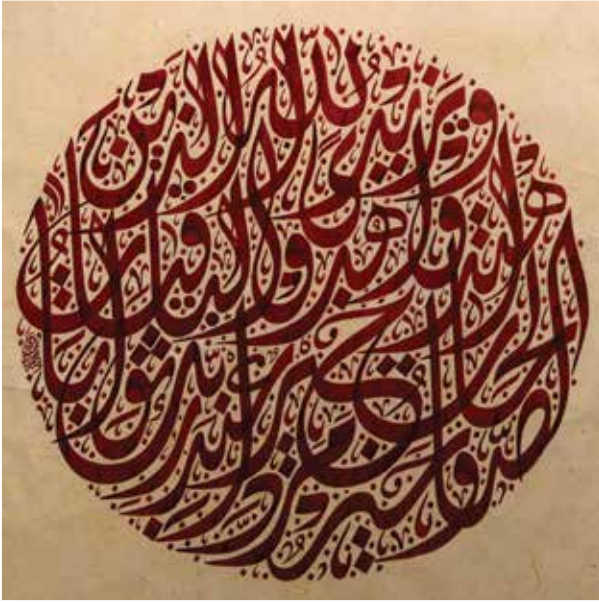 ويزيد الله الذين
اهتدوا هدى والباقيات
الصالحات خير عند ربك ثوابا
وخير مردا